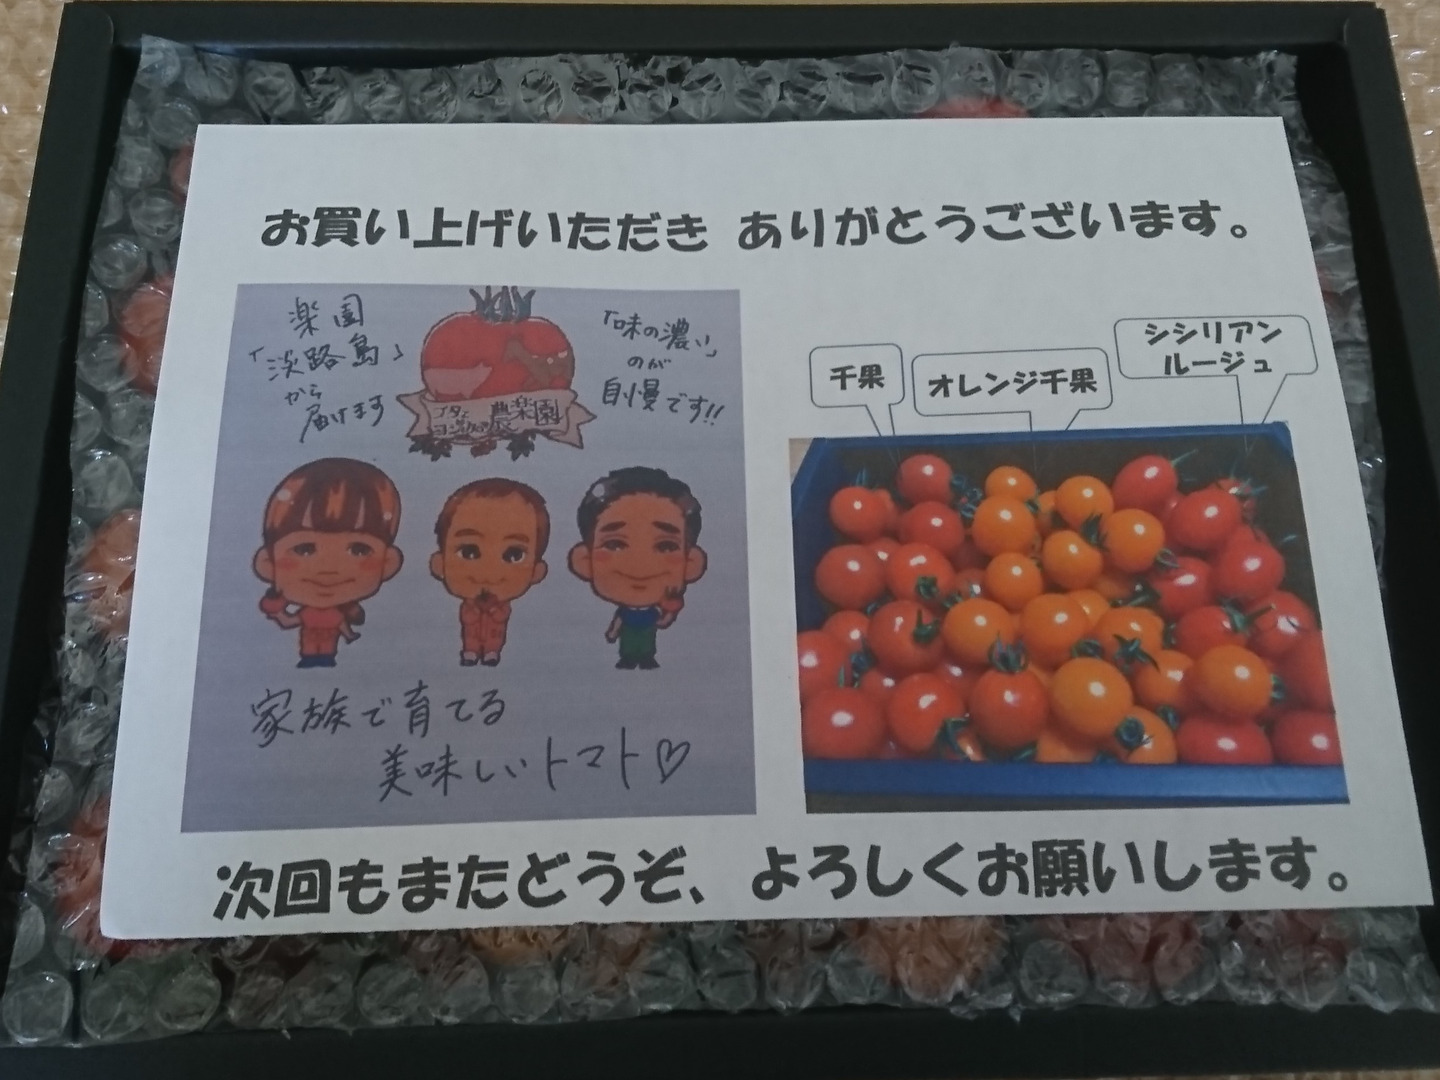 お買い上げいただき ありがとうございます。
楽園
「淡路島」
から
届けます
「味の濃い」
のが
自慢です!!
農楽園
家族で育てる
美味しいトマト♡
千果
オレンジ千果
シシリアン
ルージュ
次回もまたどうぞ、よろしくお願いします。